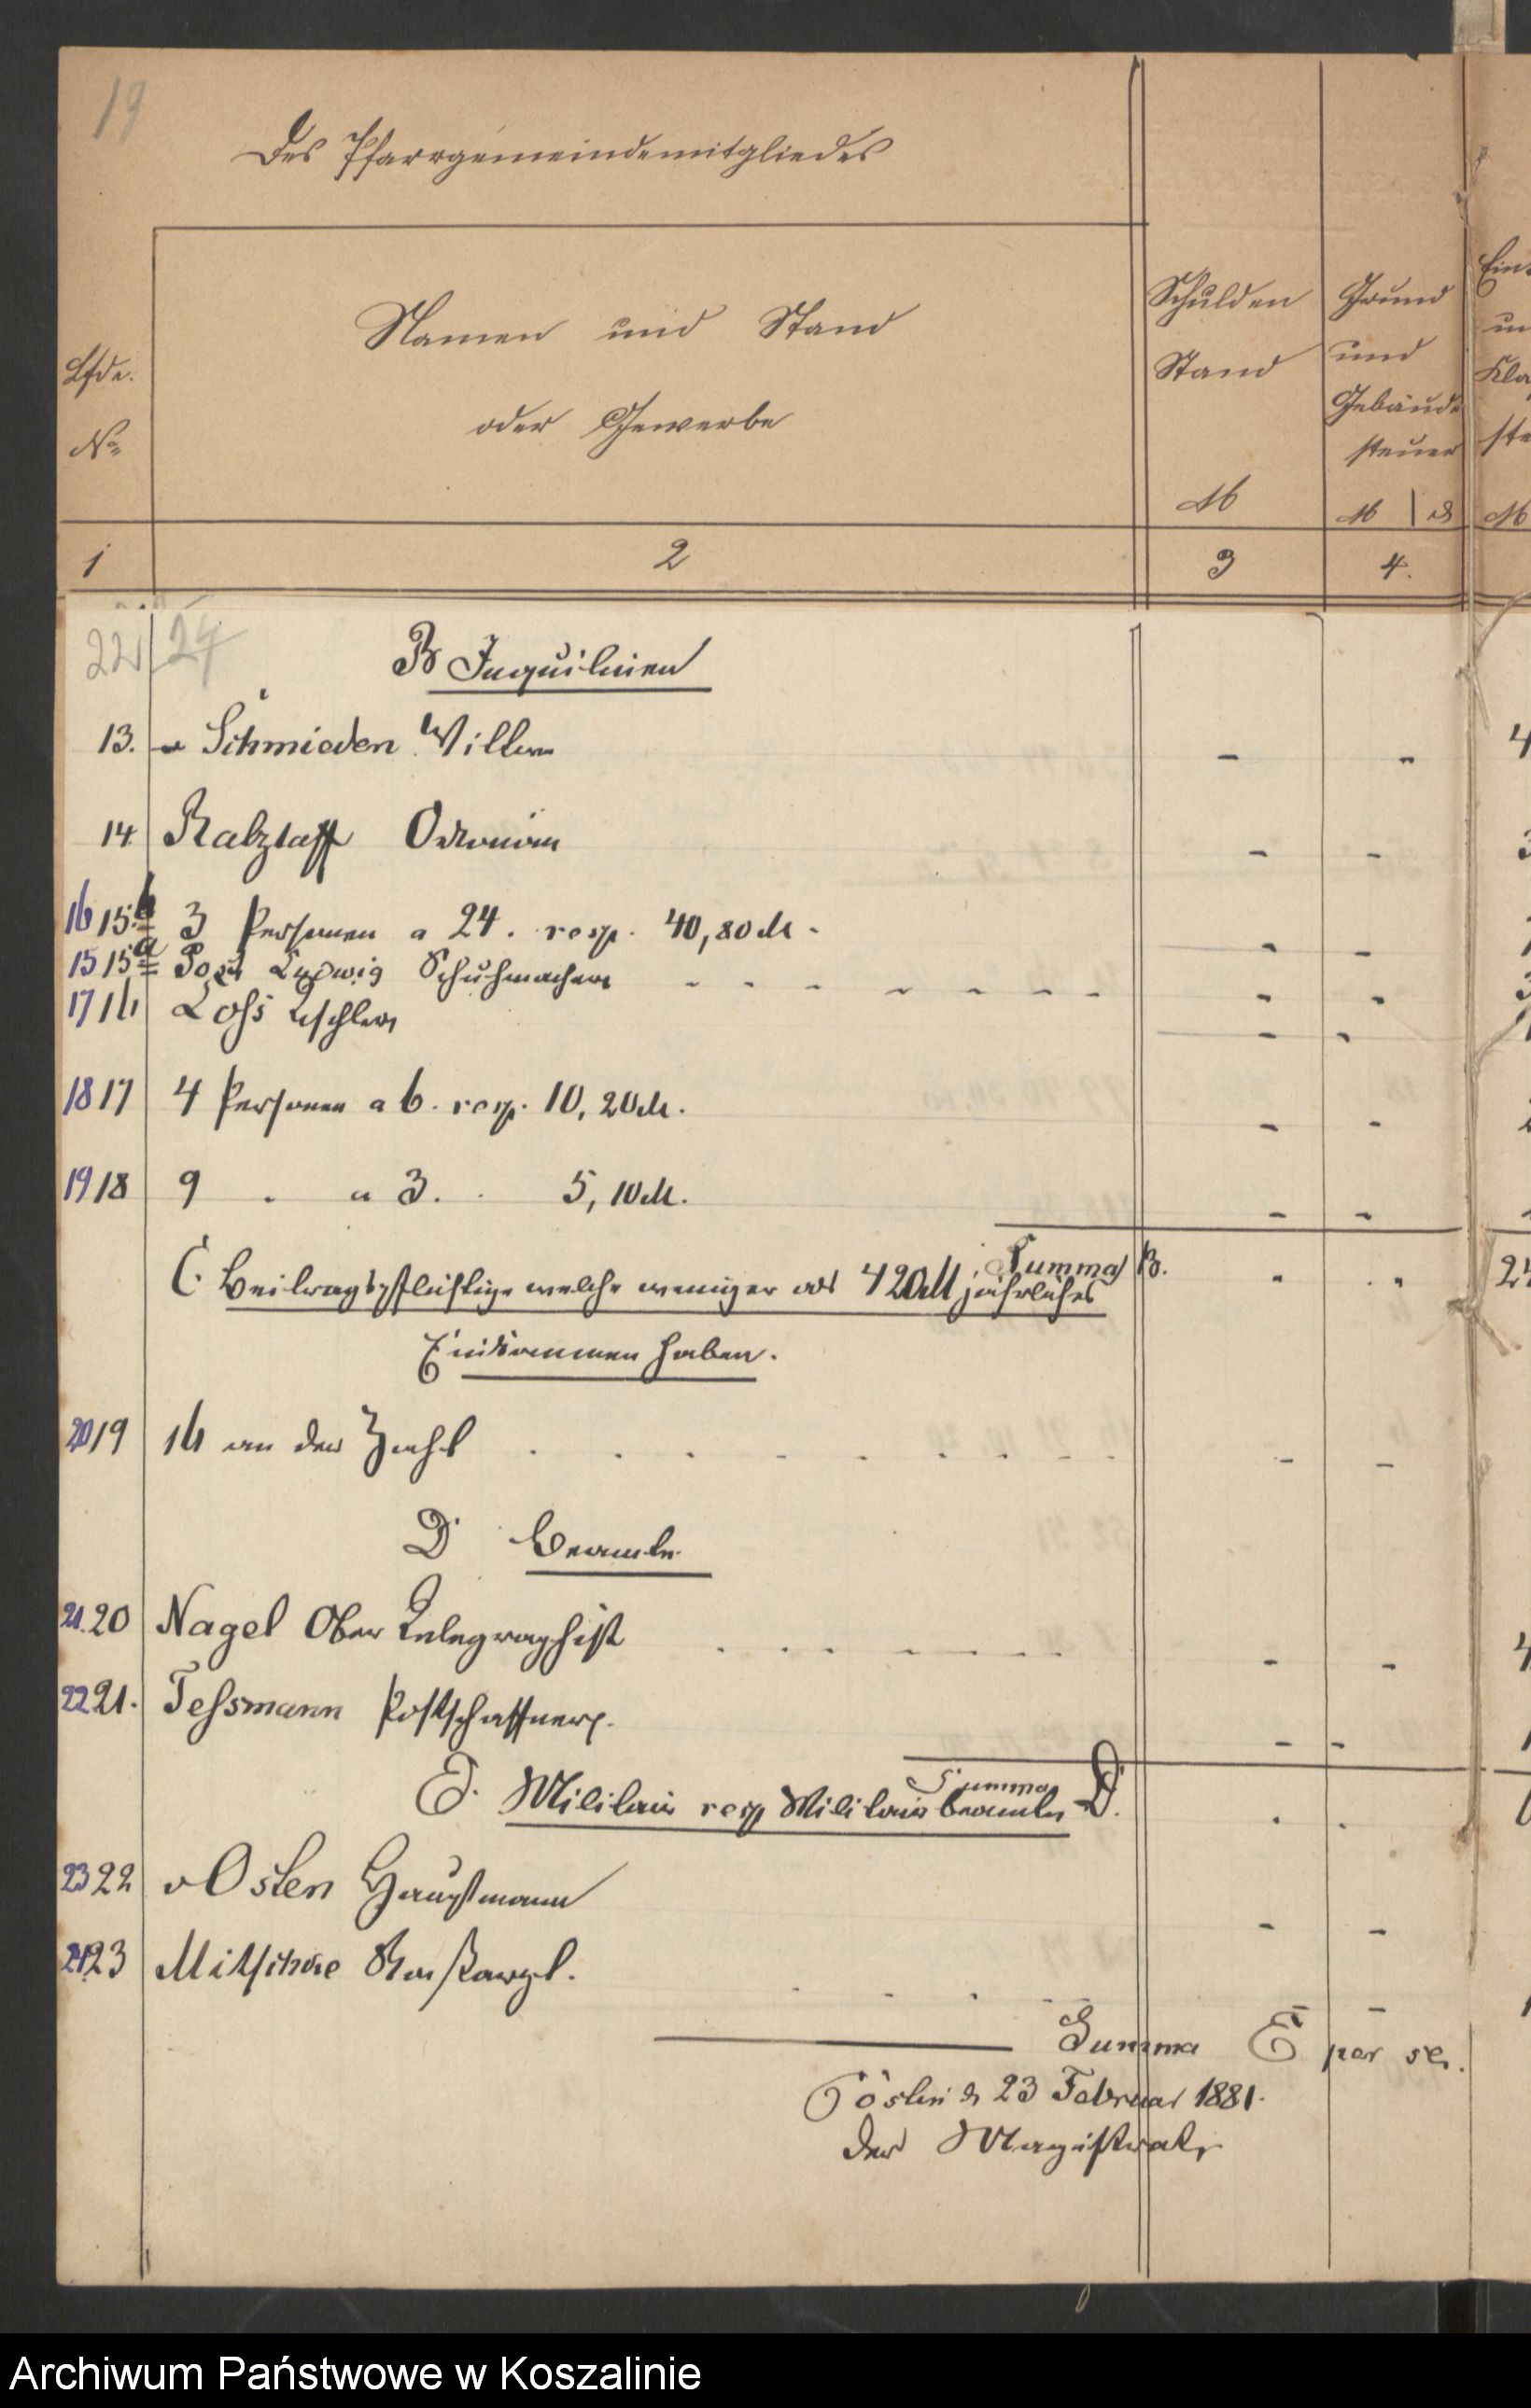 19
Des Pfarrgemeindemitgliedes
Lfde.
No
Namen und Stand
oder Gewerbe
Schulden
Stand
M
Grund
und
Gebäude
steuer
M
Ein
un
Kla
ste
M
1 2 3 4.
22 24
B Inquilinen
13. v Schmieden Wittwe - - 4
14 Oekonom - - 3
16 15b 3 Personen a 24. resp. 40,80 M. - -
15 15a Post Ludwig Schuhmacher - -
17 16 Loss Tischler - -
18 17 4 Personen a 6. resp. 10,20 M. - -
19 18 9 . a 3. . 5,10 M. - -
Summa B. 24
C. Beitragspflichtige welche weniger als 420 M jährliches
Einkommen haben.
20 19 16 an der Zahl - -
D Beamte
21. 20 Nagel Ober Telegraphist - - 4
22 21. Tessmann Postschaffner. - -
Summa D.
E. Militair resp Militair Beamte
23 22 v Osten Hauptmann - -
24 23 -
Summa E per se.
Cöslin d 23 Februar 1881.
Der Magistrat
Archiwum Państwowe w Koszalinie